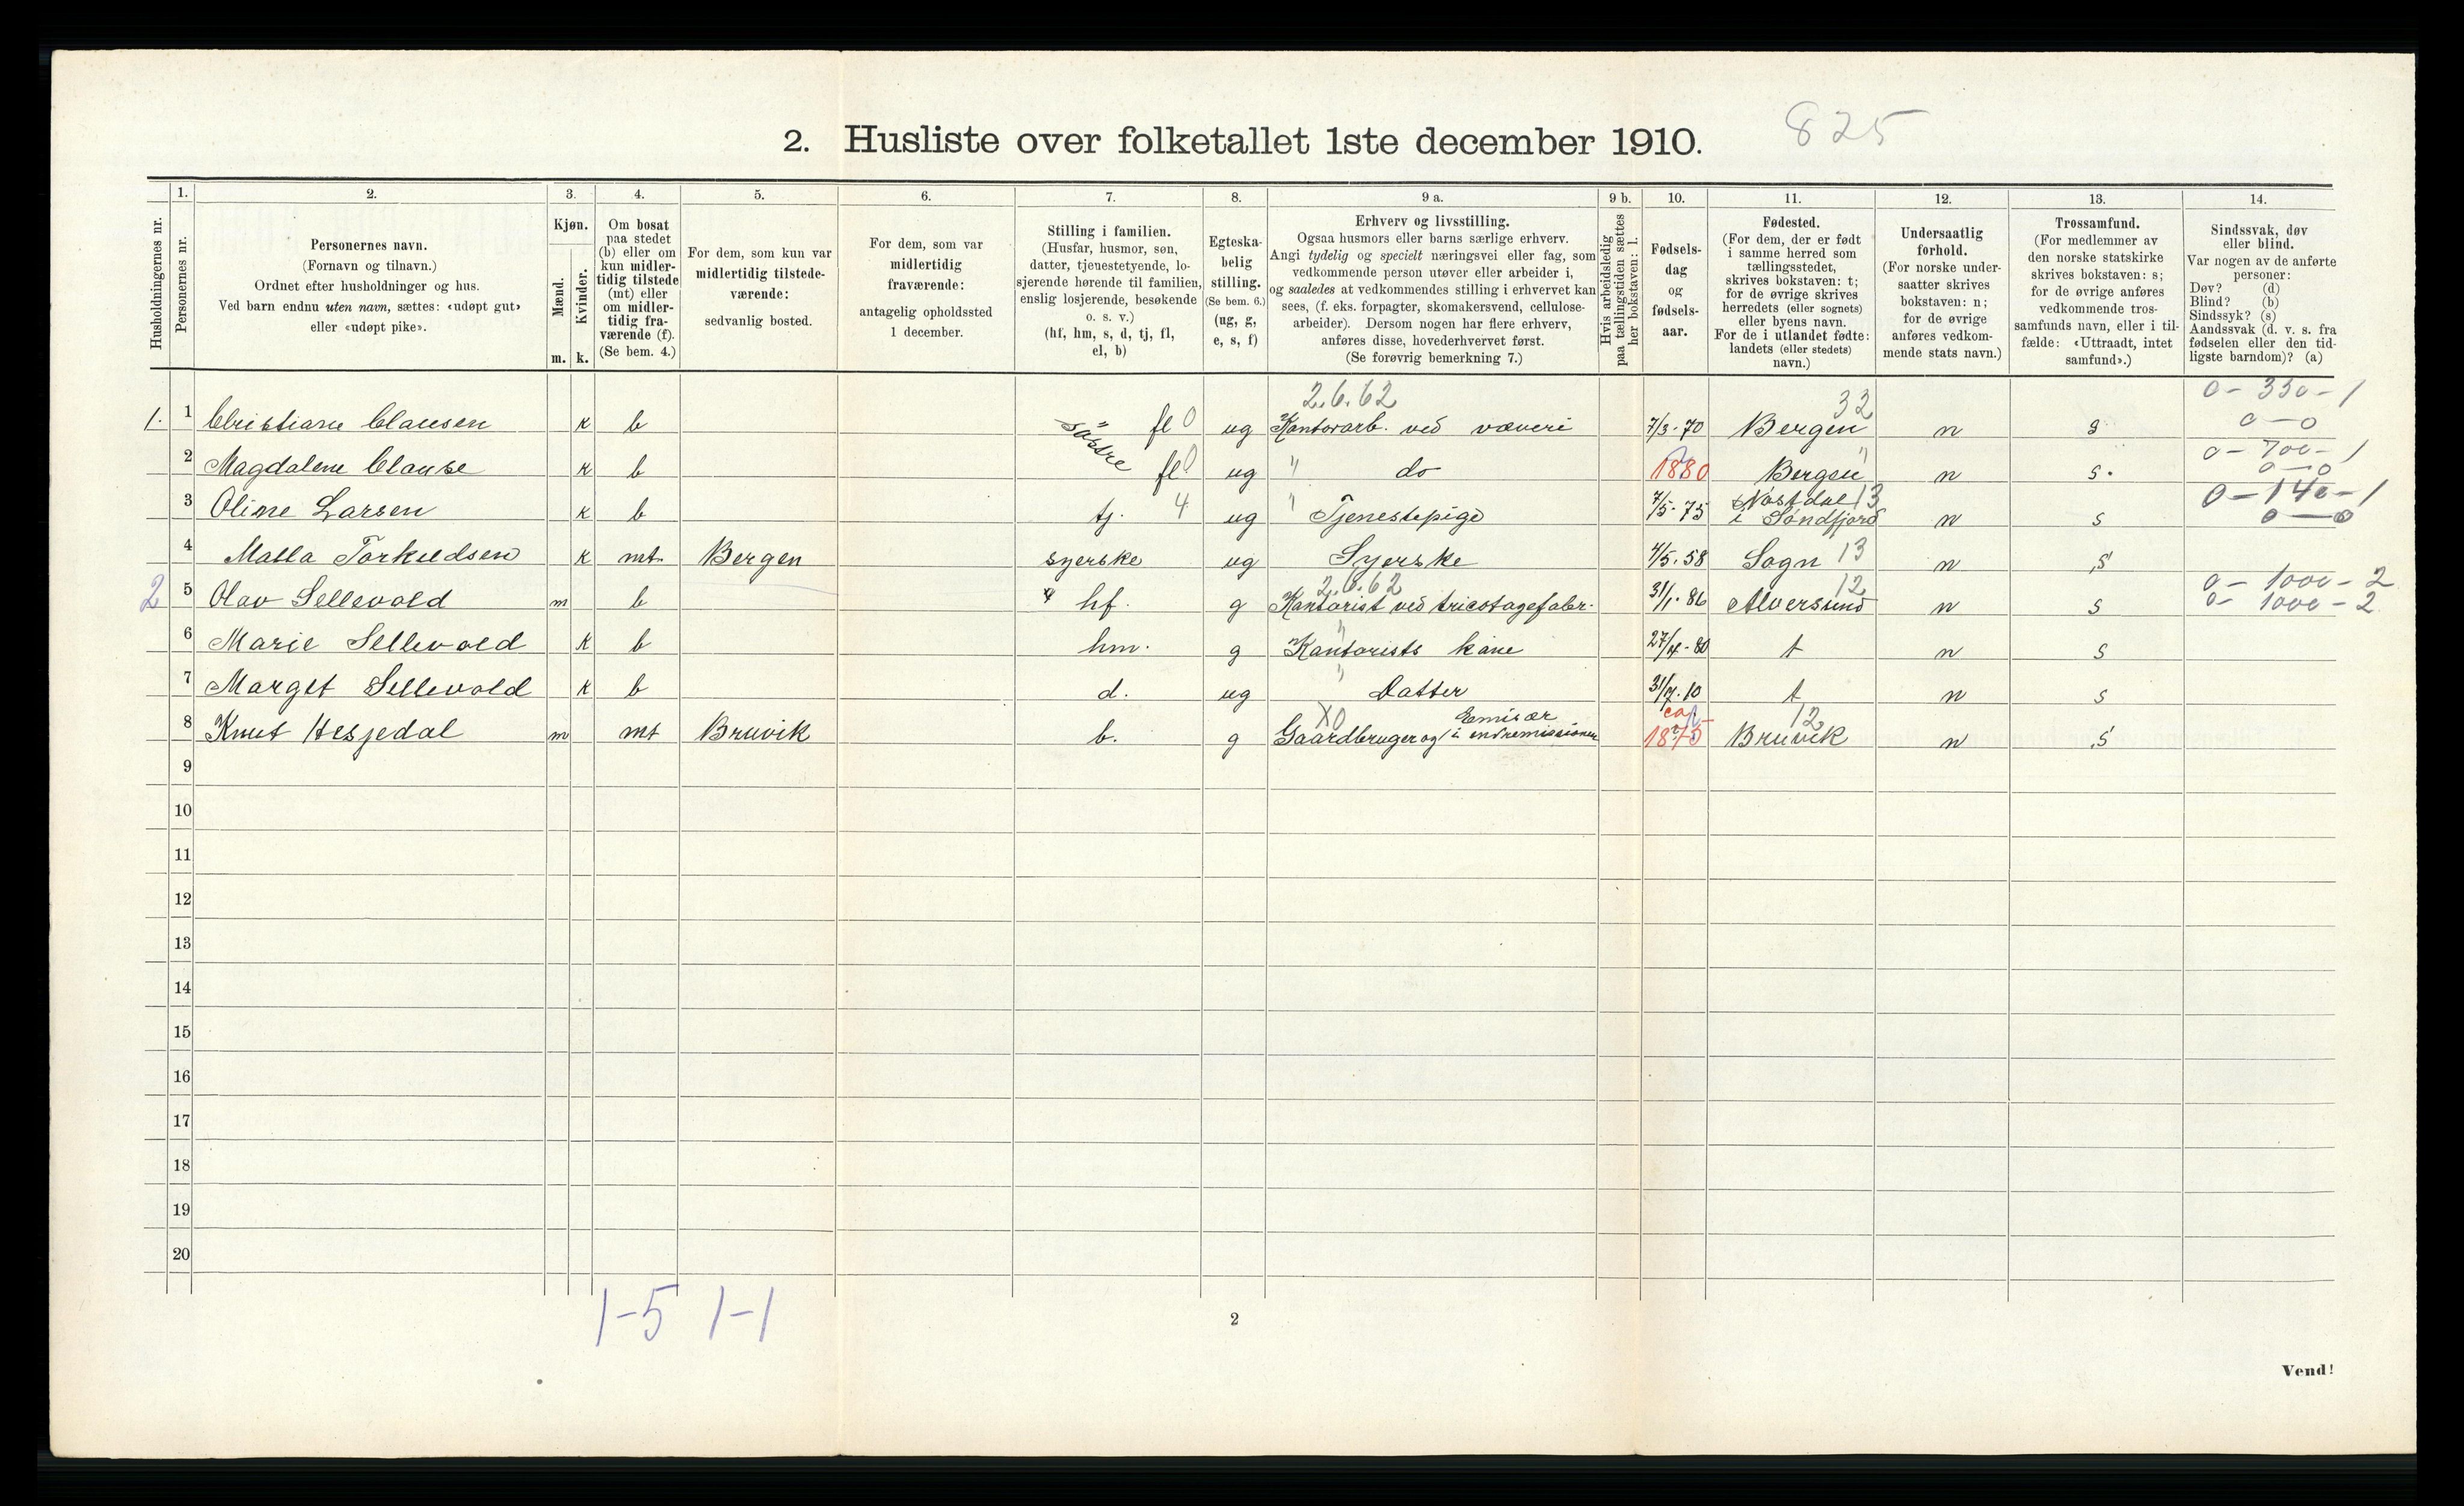 825
2. Husliste over folketallet 1ste december 1910.
Husholdningernes nr.
1.
Personernes nr.
2.
Personernes navn.
(Fornavn og tilnavn.)
Ordnet efter husholdninger og hus.
Ved barn endnu uten navn, sættes: «udøpt gut»
eller «udøpt pike».
3.
Kjøn.
Mænd.
Kvinder.
m. k.
4.
Om bosat
paa stedet
(b) eller om
kun midler-
tidig tilstede
(mt) eller
om midler-
tidig fra-
værende (f).
(Se bem. 4.)
5.
For dem, som kun var
midlertidig tilstede-
værende:
sedvanlig bosted.
6.
For dem, som var
midlertidig
fraværende:
antagelig opholdssted
1 december.
7.
Stilling i familien.
(Husfar, husmor, søn,
datter, tjenestetyende, lo-
sjerende hørende til familien,
enslig losjerende, besøkende
o. s. v.)
(hf, hm, s, d, tj, fl,
el, b)
8.
Egteska-
belig
stilling.
(Se bem. 6.)
(ug, g,
e, s, f)
9 a.
Erhverv og livsstilling.
Ogsaa husmors eller barns særlige erhverv.
Angi tydelig og specielt næringsvei eller fag, som
vedkommende person utøver eller arbeider i,
og saaledes at vedkommendes stilling i erhvervet kan
sees, (f. eks. forpagter, skomakersvend, cellulose-
arbeider). Dersom nogen har flere erhverv,
anføres disse, hovederhvervet først.
(Se forøvrig bemerkning 7.)
9 b.
Hvis arbeidsledig
paa tællingstiden sættes
her bokstaven: l.
10.
Fødsels-
dag
og
fødsels-
aar.
11.
Fødested.
(For dem, der er født
i samme herred som
tællingsstedet,
skrives bokstaven: t;
for de øvrige skrives
herredets (eller sognets)
eller byens navn.
For de i utlandet fødte:
landets (eller stedets)
navn.)
12.
Undersaatlig
forhold.
(For norske under-
saatter skrives
bokstaven: n;
for de øvrige
anføres vedkom-
mende stats navn.)
13.
Trossamfund.
(For medlemmer av
den norske statskirke
skrives bokstaven: s;
for de øvrige anføres
vedkommende tros-
samfunds navn, eller i til-
fælde: «Uttraadt, intet
samfund».)
14.
Sindssvak, døv
eller blind.
Var nogen av de anførte
personer:
Døv? (d)
Blind? (b)
Sindssyk? (s)
Aandssvak (d. v. s. fra
fødselen eller den tid-
ligste barndom)? (a)
2.6.62 32 0-350-1
1. 1 Christiane Clausen k b søstre fl 0 ug Kontorarb. ved væveri 7/3-70 Bergen n s 0-0
0-700-1
2 Magdalene Clause k b " fl 0 ug " do 1880 Bergen " n s. 0-0
3 Oline Larsen k b tj. 4 ug " Tjenestepige 7/5-75 Nøstdal 13 i Søndfjord n s 0-140-1 0-0
4 Malla Torkildsen k mt. Bergen syerske ug Syerske 4/5.58 Sogn 13 n s
2.6.62 12 0-1000-2
2 5 Olav Sellevold m b hf. g Kontorist ved tricotagefabr. 31/1.86 Alversund n s 0-1000-2
6 Marie Sellevold k b hm. g " Kontorists kone 27/4-80 t n s
7 Marget Sellevold k b d. ug " Datter 31/7.10 t n s
8 Knut Hesjedal m mt Bruvik b. g X0 Gaardbruger og Emisær i indremissionen ca. 1875 Bruvik 12 n s
9
10
11
12
13
14
15
16
17
18
19
20
1-5 1-1
2
Vend!